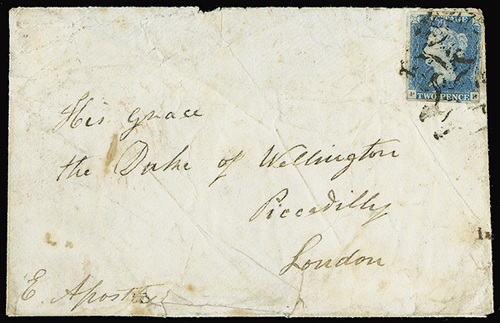 POSTAGE
TWO PENCE
His Grace
the Duke of Wellington
Piccadilly
London
E.